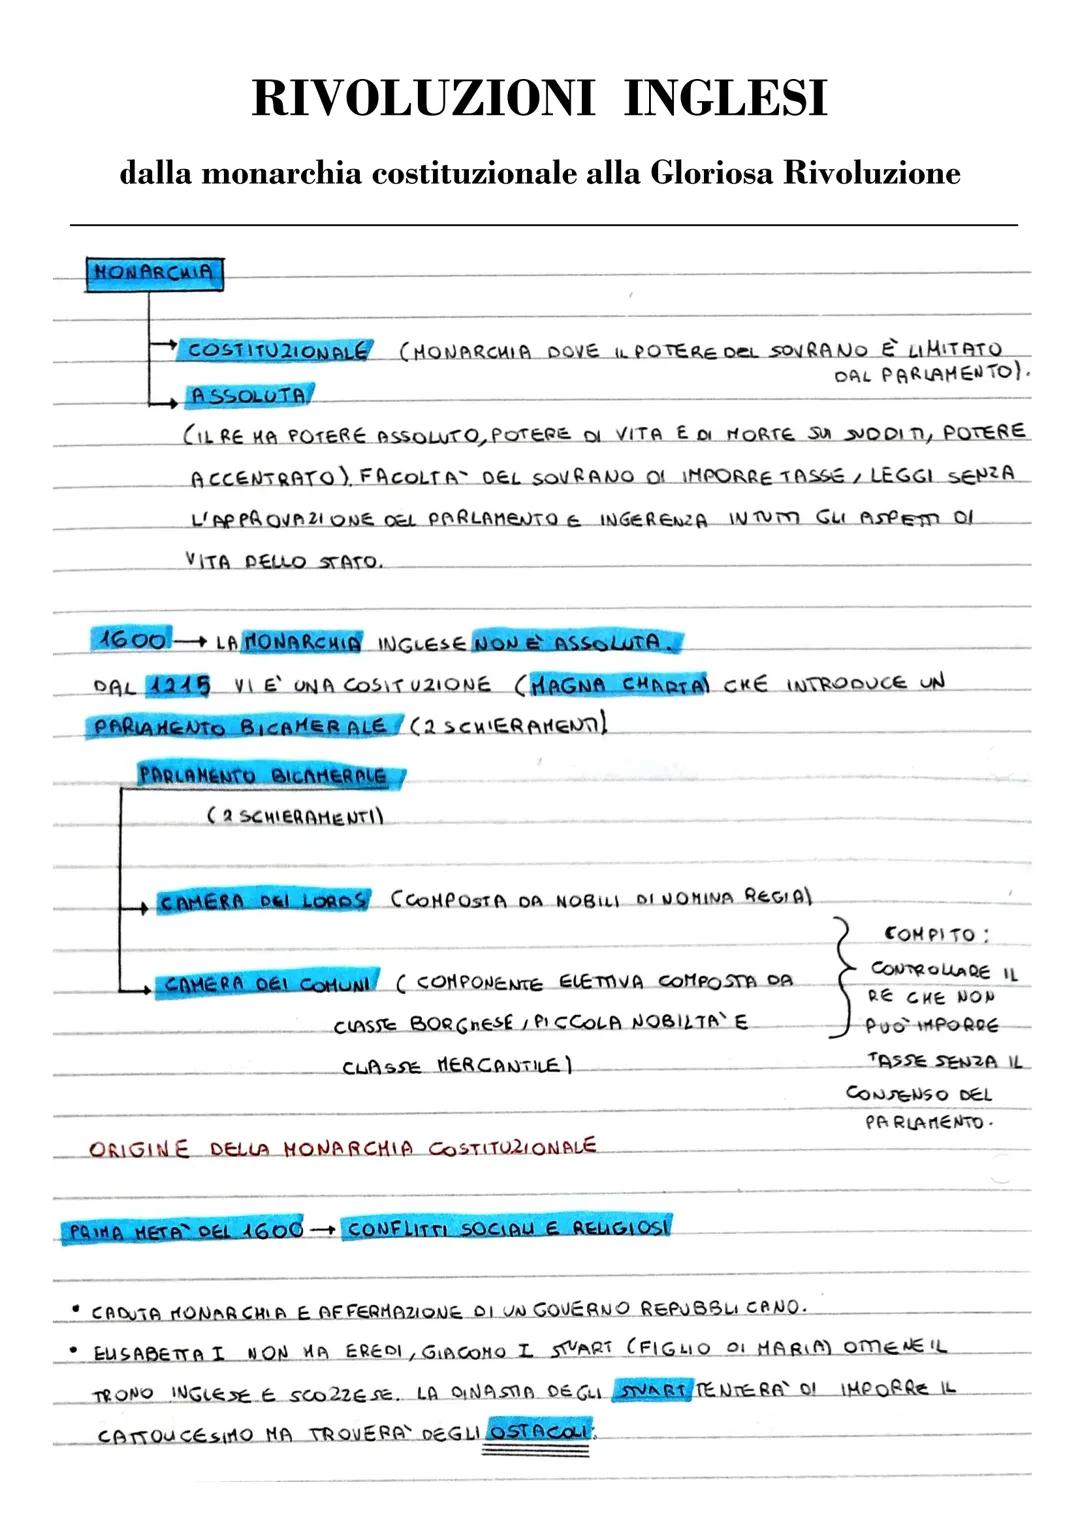 RIVOLUZIONI INGLESI
dalla monarchia costituzionale alla Gloriosa Rivoluzione
MONARCHIA
COSTITUZIONALE (MONARCHIA DOVE IL POTERE DEL SOVRANO È LIMITATO
DAL PARLAMENTO).
ASSOLUTA
(IL RE HA POTERE ASSOLUTO, POTERE DI VITA E DI MORTE SUI SUDDITI, POTERE
ACCENTRATO). FACOLTA` DEL SOVRANO DI IMPORRE TASSE, LEGGI SENZA
L'APPROVAZIONE DEL PARLAMENTO E INGERENZA IN TUTTI GLI ASPETTI DI
VITA DELLO STATO.
1600 → LA MONARCHIA INGLESE NON E` ASSOLUTA.
DAL 1215 VI E' UNA COSITUZIONE (MAGNA CHARTA) CHE INTRODUCE UN
PARLAMENTO BICAMERALE (2 SCHIERAMENTI)
PARLAMENTO BICAMERALE
(2 SCHIERAMENTI)
CAMERA DEI LORDS (COMPOSTA DA NOBILI DI NOMINA REGIA)
CAMERA DEI COMUNI (COMPONENTE ELETTIVA COMPOSTA DA
CLASSE BORGHESE, PICCOLA NOBILTA` E
CLASSE MERCANTILE)
COMPITO:
CONTROLLARE IL
RE CHE NON
PUO` IMPORRE
TASSE SENZA IL
CONSENSO DEL
PARLAMENTO.
ORIGINE DELLA MONARCHIA COSTITUZIONALE
PRIMA META` DEL 1600 → CONFLITTI SOCIALI E RELIGIOSI
• CADUTA MONARCHIA E AFFERMAZIONE DI UN GOVERNO REPUBBLICANO.
• ELISABETTA I NON HA EREDI, GIACOMO I STUART (FIGLIO DI MARIA) OTTIENE IL
TRONO INGLESE E SCOZZESE. LA DINASTIA DEGLI STUART TENTERA` DI IMPORRE IL
CATTOLICESIMO MA TROVERA` DEGLI OSTACOLI: